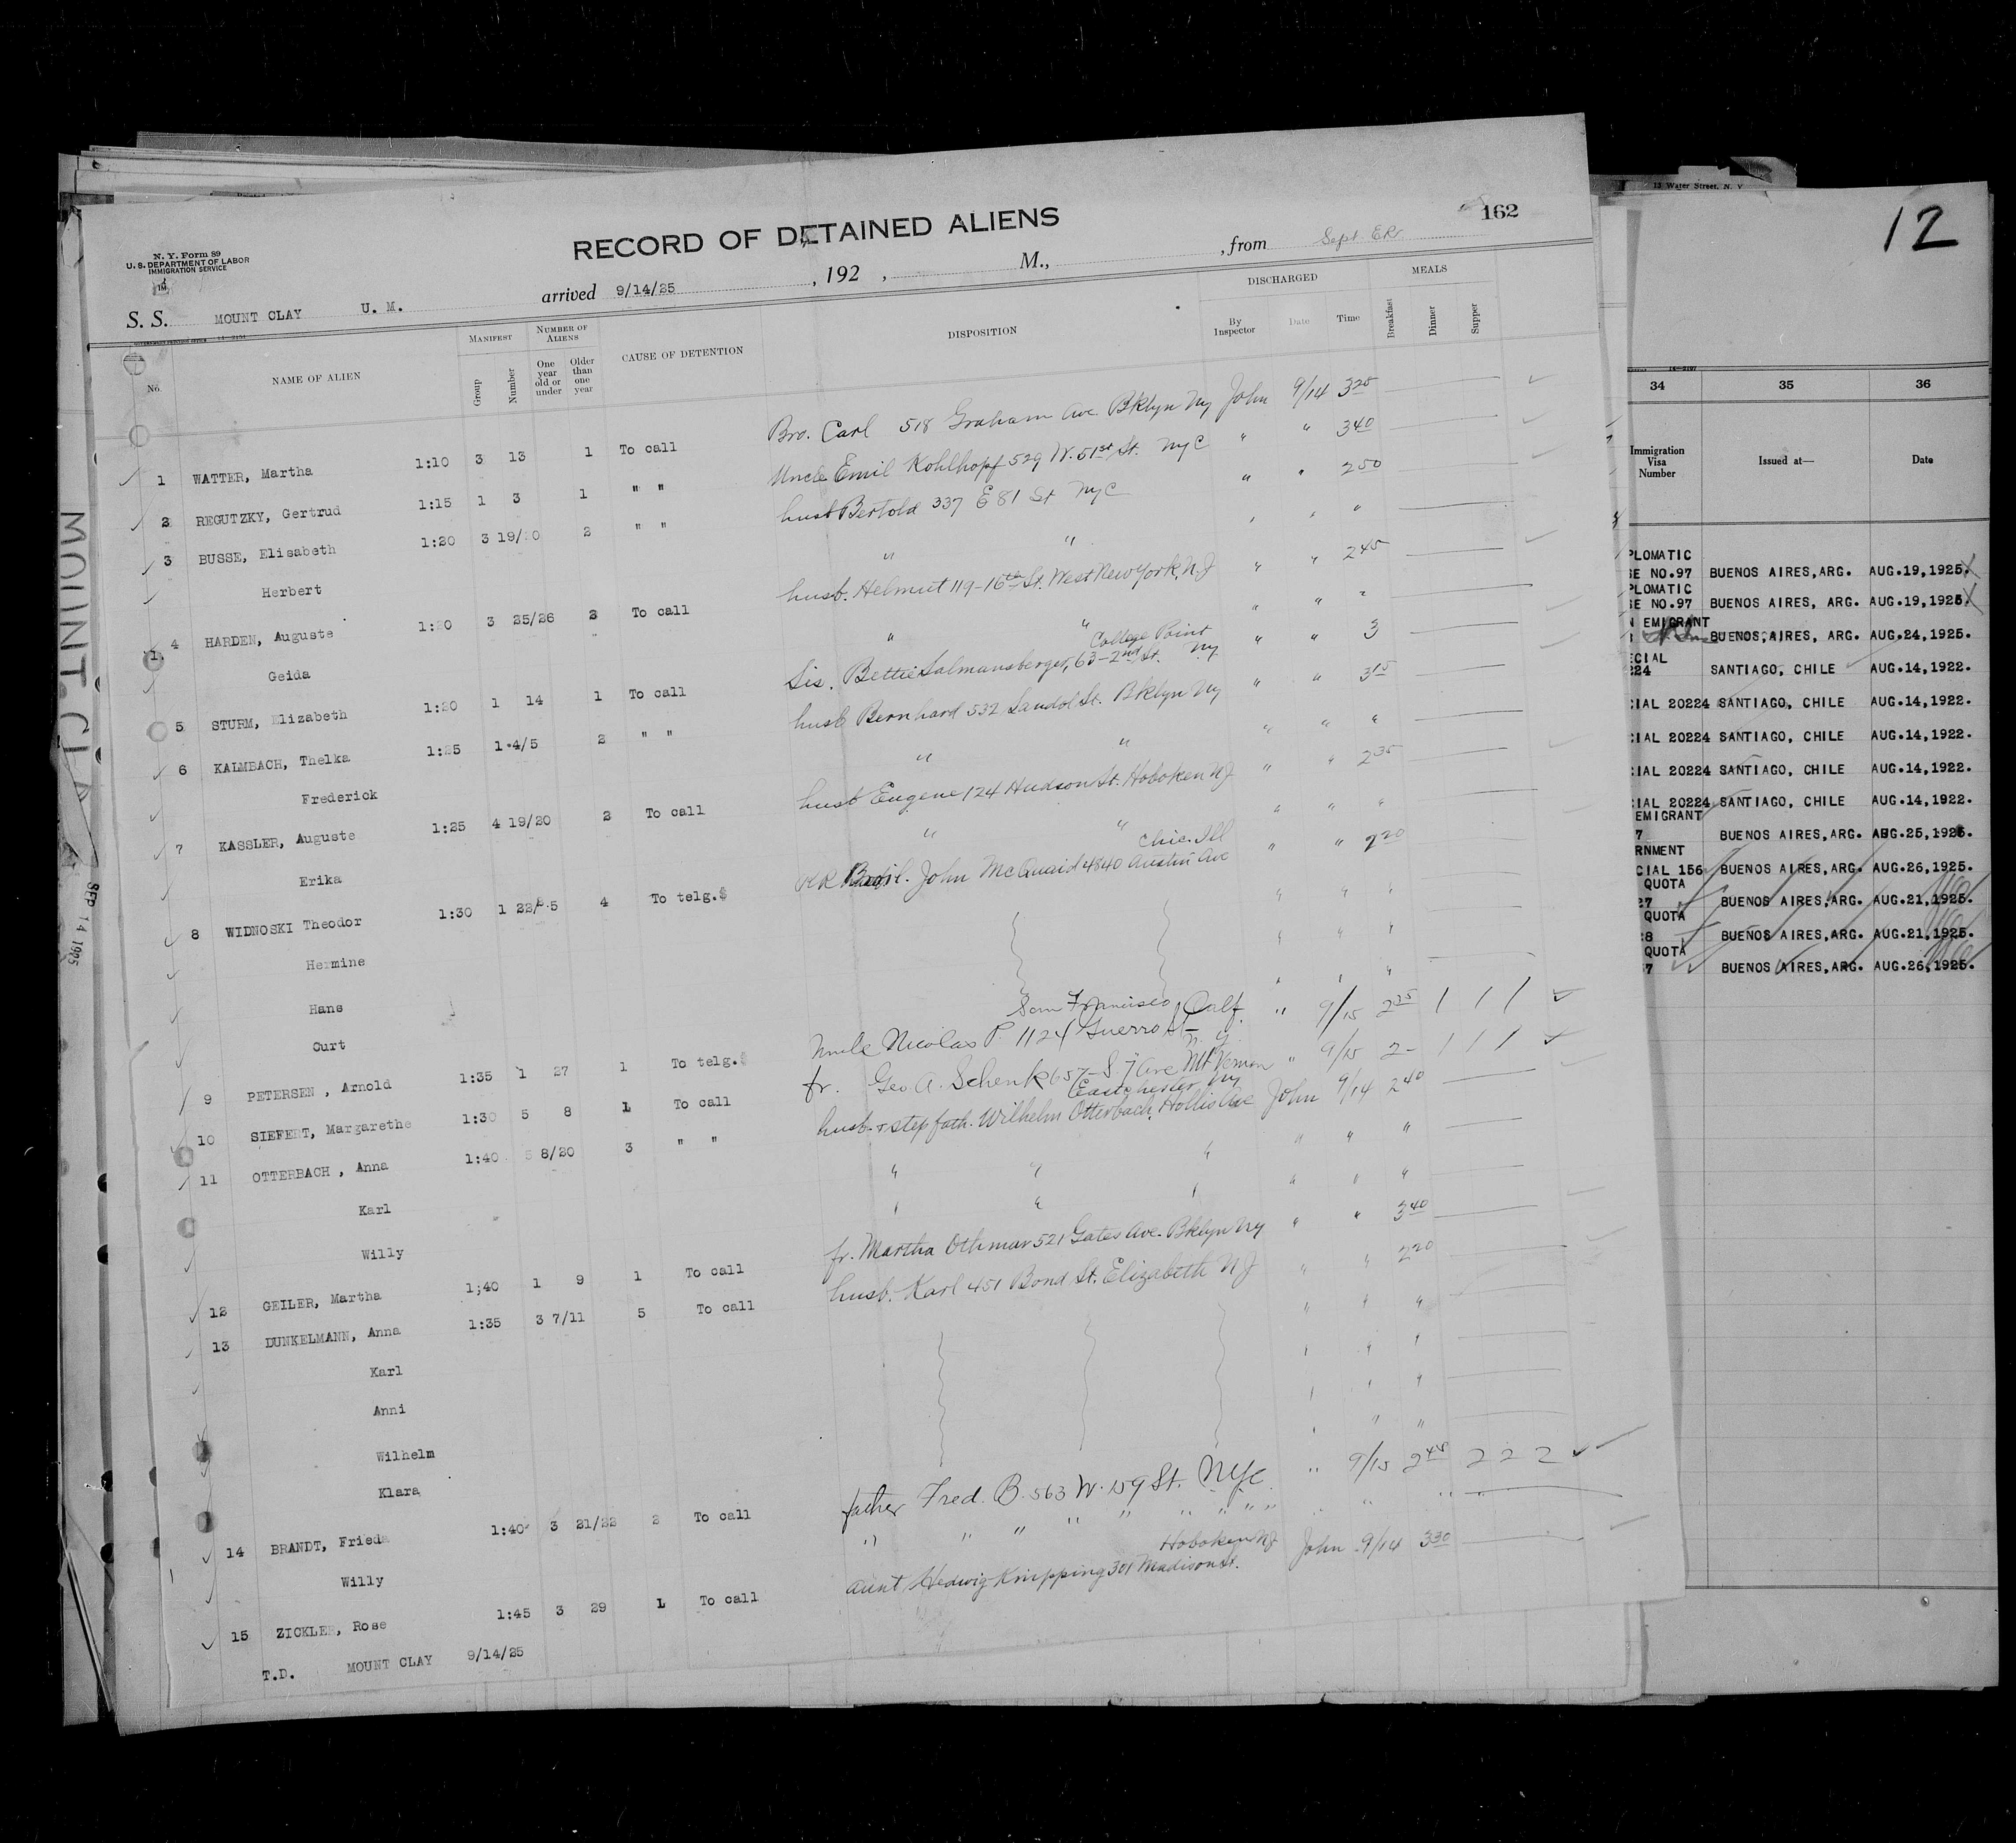 13 Water Street, N. Y
12
162
RECORD OF DETAINED ALIENS
N. Y. Form 89
U. S. DEPARTMENT OF LABOR
IMMIGRATION SERVICE
S. S. MOUNT CLAY U. M. arrived 9/14/25 , 192 , M., , from Sept
No. NAME OF ALIEN MANIFEST Group Number NUMBER OF ALIENS One year old or under Older than one year CAUSE OF DETENTION DISPOSITION DISCHARGED By Inspector Date Time MEALS Breakfast Dinner Supper
1 WATTER, Martha 1:10 3 13 1 To call Bro. Carl 518 Graham Ave. Bklyn Ny John 9/14 3 25
2 REGUTZKY, Gertrud 1:15 1 3 1 " " Uncle Emil Kohlhopf 529 W. 51st St. NyC " " 3 40
3 BUSSE, Elisabeth 1:20 3 19/20 2 " " husb Bertold 337 E 81 St NyC " " 2 50
Herbert " " " " "
4 HARDEN, Auguste 1:20 3 25/26 2 To call husb. Helmut 119-16th St. West New York, N.J " " 2 45
Geida " " " " "
5 STURM, Elizabeth 1:20 1 14 1 To call Sis. Bettie Salmansberger, 63-2nd St. College Point Ny " " 3
6 KALMBACH, Thelka 1:25 1 4/5 2 " " husb Bernhard 532 St. Bklyn Ny " " 3 15
Frederick " " " " "
7 KASSLER, Auguste 1:25 4 19/20 2 To call husb Eugene 124 Hudson St. Hoboken NJ " " 2 35
Erika " " " " "
8 WIDNOSKI Theodor 1:30 1 22/ 5 4 To telg.$ John McQuaid 4840 Austin Ave Chic. Ill " " 2 20
Hermine " " "
Hans " " "
Curt " " "
9 PETERSEN , Arnold 1:35 1 27 1 To telg.$ Uncle Nicolas P. 1124 Guerro St San Francisco, Calf. " 9/15 2 35 1 1 1
10 SIEFERT, Margarethe 1:30 5 8 1 To call fr. Geo A. Schenk 657-S 7 Ave Mt Vernon n. y. " 9/15 2 - 1 1 1
11 OTTERBACH , Anna 1:40 5 8/20 3 " " husb. + step fath. Wilhelm Otterbach, Hollis Ave Eastchester, Ny John 9/14 2 40
Karl " " " " " "
Willy " " " " " "
12 GEILER, Martha 1;40 1 9 1 To call fr. Martha Othmar 521 Gates Ave. Bklyn Ny " " 3 40
13 DUNKELMANN, Anna 1:35 3 7/11 5 To call husb. Karl 451 Bond St. Elizabeth NJ " " 2 20
Karl " " "
Anni " " "
Wilhelm " " "
Klara " " "
14 BRANDT, Frieda 1:40 3 21/22 2 To call father Fred. B. 563 W. 159 St. NYC " 9/15 2 45 2 2 2
Willy " " " " " " " " " " "
15 ZICKLER, Rose 1:45 3 29 1 To call Aunt Hedwig Knipping 301 Madison St. Hoboken NJ John 9/14 3 30
T.D. MOUNT CLAY 9/14/25
MOUNT CLAY
SEP 14 1925
34 35 36
Immigration Visa Number Issued at— Date
PLOMATIC
SE NO.97 BUENOS AIRES,ARG. AUG.19,1925.
PLOMATIC
SE NO.97 BUENOS AIRES, ARG. AUG.19,1925.
N EMIGRANT
BUENOS,AIRES, ARG. AUG.24,1925.
ECIAL
224 SANTIAGO, CHILE AUG.14,1922.
CIAL 20224 SANTIAGO, CHILE AUG.14,1922.
CIAL 20224 SANTIAGO, CHILE AUG.14,1922.
CIAL 20224 SANTIAGO, CHILE AUG.14,1922.
CIAL 20224 SANTIAGO, CHILE AUG.14,1922.
EMIGRANT
7 BUENOS AIRES,ARG. AUG.25,1925.
RNMENT
CIAL 156 BUENOS AIRES,ARG. AUG.26,1925.
QUOTA
27 BUENOS AIRES,ARG. AUG.21,1925.
QUOTA
28 BUENOS AIRES,ARG. AUG.21,1925.
QUOTA
57 BUENOS AIRES,ARG. AUG.26,1925.